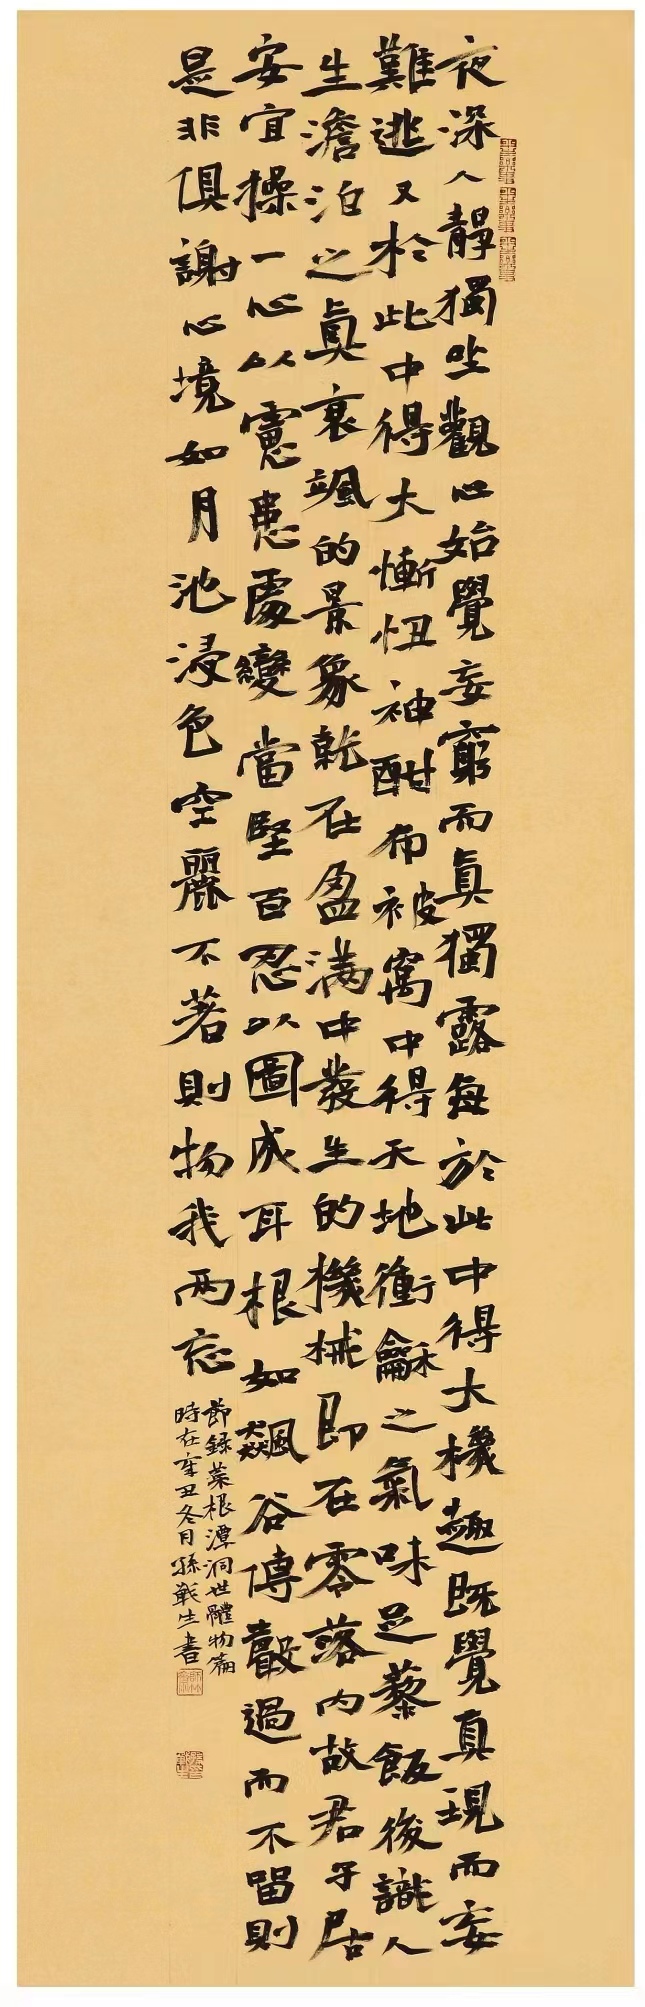 夜深人靜獨坐觀心始覺妄窮而眞獨露每於此中得大機趣既覺真現而妄
難逃又於此中得大慚忸神酣布被窩中得天地衝龢之氣味足藜飯後識人
生澹泊之眞衰颯的景象就在盈满中發生的機械即在零落内故君子居
安宜操一心以慮患處變當堅百忍以圖成耳根如飆谷傳聲過而不留則
是非俱謝心境如月池浸色空麗不著則物我兩忘
節錄菜根潭洞世體物篇
時在辛丑冬月孫戰生書